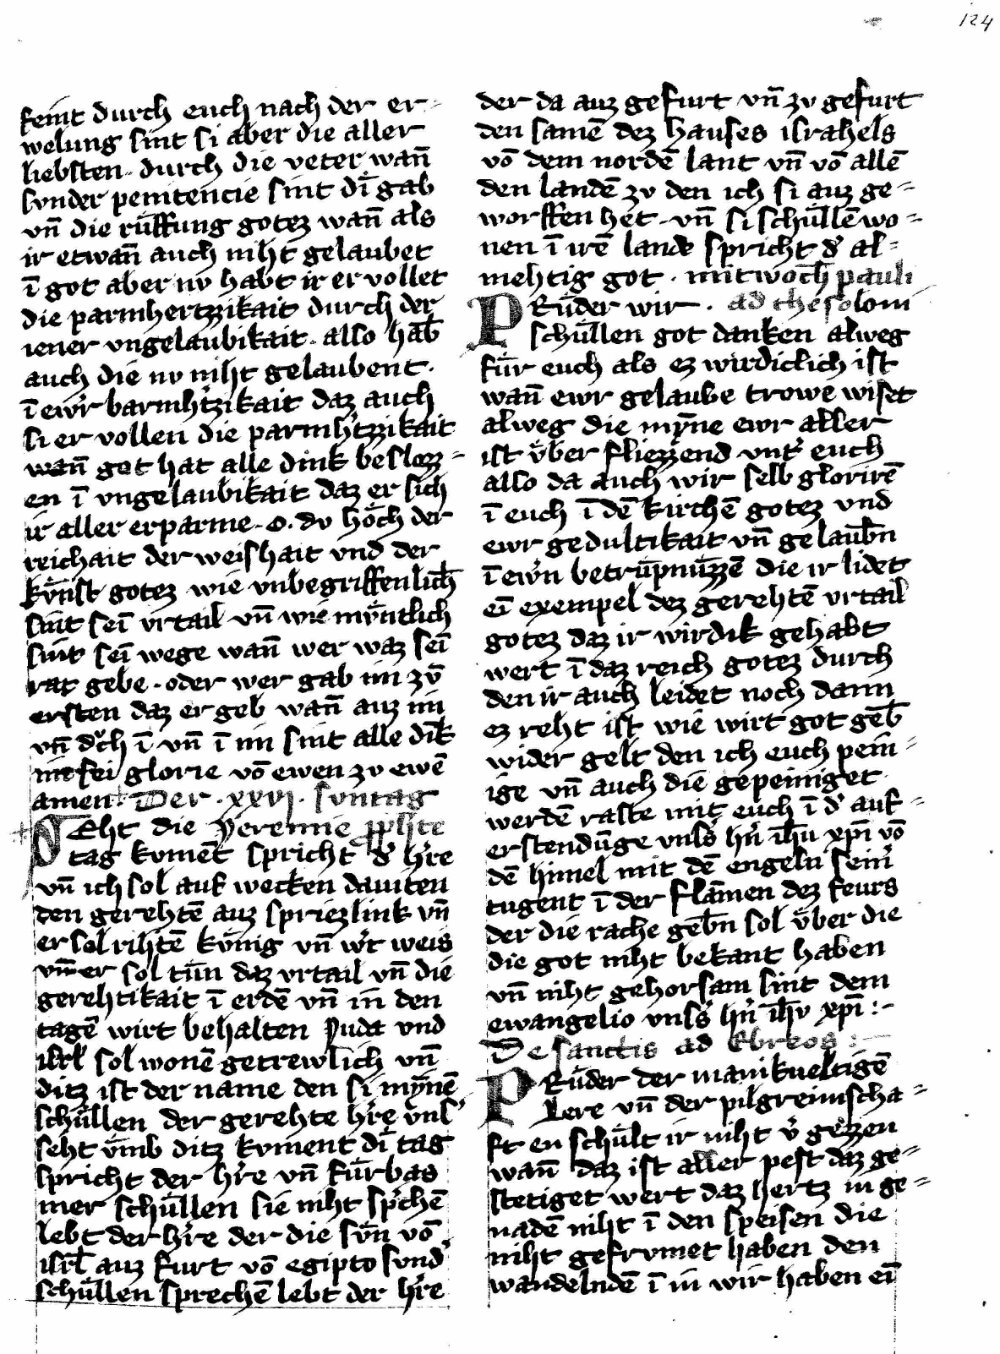 124
feint durch euch nach der er-
welung sint si aber die aller
liebsten durch die veter wan̄
sunder penitencie sint di gab
vn̄ die rüffung gotez wan̄ als
ir etwan̄ auch niht gelaubet
ī got aber nv habt ir er vollet
die parmhertzikait durch der
iener vngelaubikait. also hab̄
auch die nv niht gelaubent.
ī ewr barmh'tzikait daz auch
si er vollen die parmh'tzzikait
wan̄ got hat alle dink beslozz-
en ī vngelaubikait daz er sich
ir aller erparme. o. dv höch der
reichait der weishait vnd der
künst gotez wie vnbegriffenlich
sint sei vrtail vn̄ wie müntlich
sint sei wege wan̄ wer waz sei
rat gebe. oder wer gab im zv̄
ersten daz er geb wan̄ auz im
vn̄ d'ch ī vn̄ ī im sint alle dīk
im sei glorie vō ewen zv ewē
amen. Der .xxvi. suntag
Seht die Yeremie pph'te
tag kvment spricht d' h're
vn̄ ich sol auf wecken dauiten
den gerehtē auz spriezlink vn̄
er sol rihtē künig vn̄ w't weis
vn̄ er sol tün daz vrtail vn̄ die
gerehtikait ī erdē vn̄ in den
tagē wirt behalten Yuda vnd
isrl̄ sol wonē getrewlich vn̄
ditz ist der name den si mynē
schüllen der gerehte h're vns'
seht vmb ditz kvment di tag
spricht der h're vn̄ fürbas
mer schüllen sie niht sp'chē
lebt der h're der die sün vō
isrl̄ auz furt vō egipto sund'
schüllen sprechē lebt der h're
der da auz gefurt vn̄ zv gefurt
den samē dez hauses israhels
vō dem nordē lant vn̄ vō allē
den landē zv den ich si auz ge-
worffen het. vn̄ si schüllē wo-
nen ī irē lande spricht d' al-
mehtig got. mitwoch pauli
PRüder wir. ad thesoloni
schüllen got danken alweg
für euch als ez wirdiclich ist
wan̄ ewr gelaube trowe wiset
alweg die mynne ewr aller
ist über fliezzend vnt' euch
also da auch wir selb glorirē
ī euch ī dē kirchen gotez vnd
ewr gedultikait vn̄ gelaub̄n
ī ew'n betrüpnüzzē die ir lidet
ei exempel dez gerehtē vrtail
gotez daz ir wirdik gehabt
wert ī daz reich gotez durch
den ir auch leidet noch dann
ez reht ist wie wirt got geb̄
wider gelt den ich euch pein-
ige vn̄ auch die gepeiniget
werdē raste mit euch ī d' auf-
erstendunge vns's h'n ih'u xp̄i vō
dē himel mit dē engeln sein'
tugent ī der flāmen dez feurs
der die rache geb̄n sol über die
die got niht bekant haben
vn̄ niht gehorsam sint dem
ewangelio vns's h'n ih'v xp̄i :-
De sanctis ad Ebreos :-
PRüder der manikueltigē
Lere vn̄ der pilgreimscha-
ft en schült ir niht v' gezzen
wan̄ daz ist aller pest daz ge-
stetiget wert daz hertz in ge-
nadē niht ī den speisen die
niht gefrvmet haben den
wandelndē ī in wir haben eī